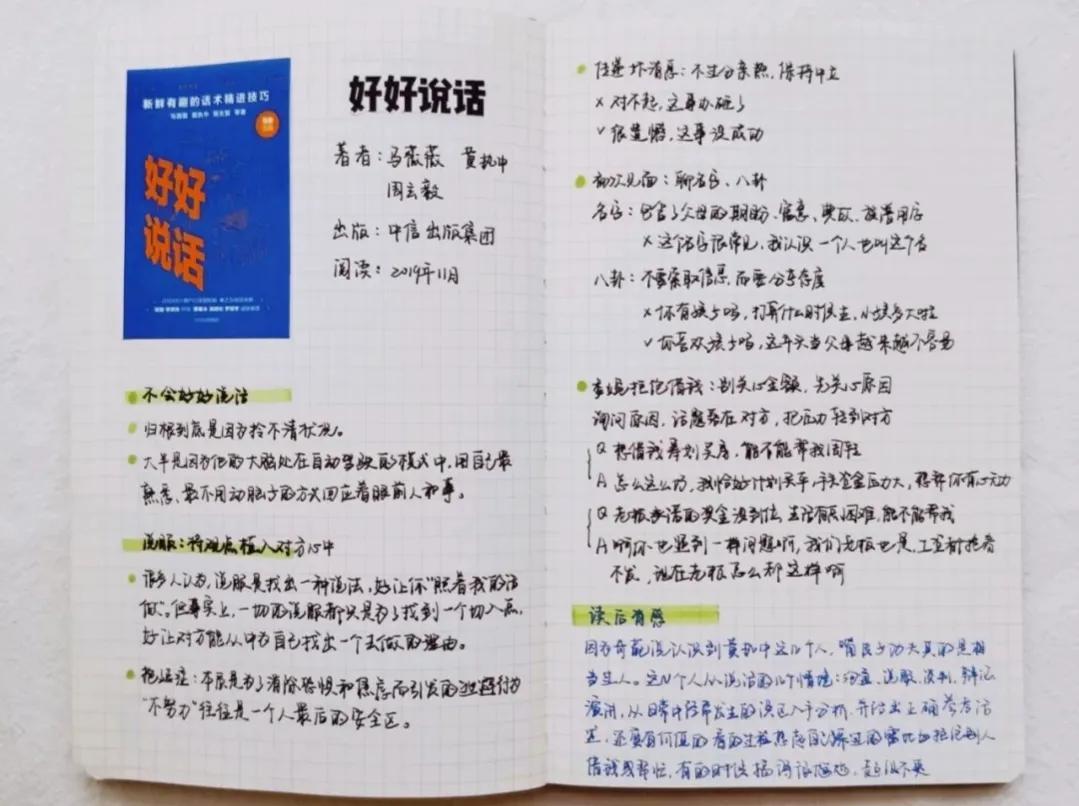 新鲜有趣的话术精进技巧
马薇薇 黄执中 周玄毅 等著
好好
说话
好好说话
著者：马薇薇 黄执中
周玄毅
出版：中信出版集团
阅读：2019年11月
不会好好说话
归根到底是因为拎不清状况。
大半是因为他的大脑处在自动驾驶的模式中，用自己最
熟悉、最不用动脑子的方式回应着眼前人和事。
说服：将观点植入对方心中
很多人认为，说服是找出一种说法，好让你“照着我的话
做”。但事实上，一切的说服都只是为了找到一个切入点，
好让对方能从中为自己找出一个去做的理由。
拖延症：本质是为了消除恐惧和焦虑而引发的逃避行为
“不努力”往往是一个人最后的安全区。
传递坏消息：不过分亲热，保持中立
× 对不起，这事办砸了
√ 很遗憾，这事没成功
初次见面：聊名字、八卦
名字：包含了父母的期盼、寓意、典故、放谱用字
× 这个名字很常见，我认识一个人也叫这个名
八卦：不要索取信息，而要分享态度
× 你有孩子吗，打算什么时候生，小孩多大啦
√ 你喜欢孩子吗，这年头当父母越来越不容易
拒绝借钱：别关心金额，先关心原因
询问原因，话题落在对方，把压力转到对方
Q 想借钱筹划买房，能不能帮我周转
A 怎么这么巧，我恰好计划买车，手头资金压力大，想帮你有心无力
Q 老板承诺的奖金没到位，生活有点困难，能不能帮我
A 啊你也遇到一样问题啊，我们老板也是，工资都拖着
不发，现在老板怎么都这样啊
读后有感
因为奇葩说认识到黄执中这几个人，嘴皮子功夫真的是相
当坐人。这几个人从说话的几个情境：沟通、说服、谈判、辩论
演讲，从日常中经常发生的误区入手分析，并给出正确参考话
术，还蛮有价值的
借钱或帮忙，有的时候搞得很尴尬